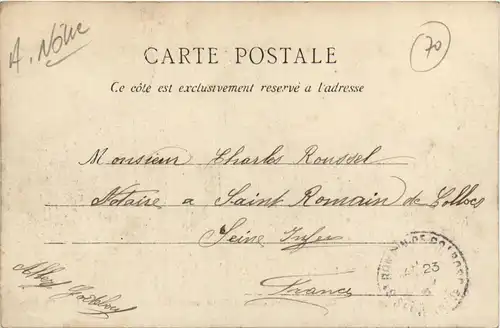 A. Nôtre
70
CARTE POSTALE
Ce côté est exclusivement reservé a l'adresse
Monsieur Charles Roussel
Notaire a Saint Romain de Colbosc
Seine Infre
France
ST ROMAIN-DE-COLBOSC
23